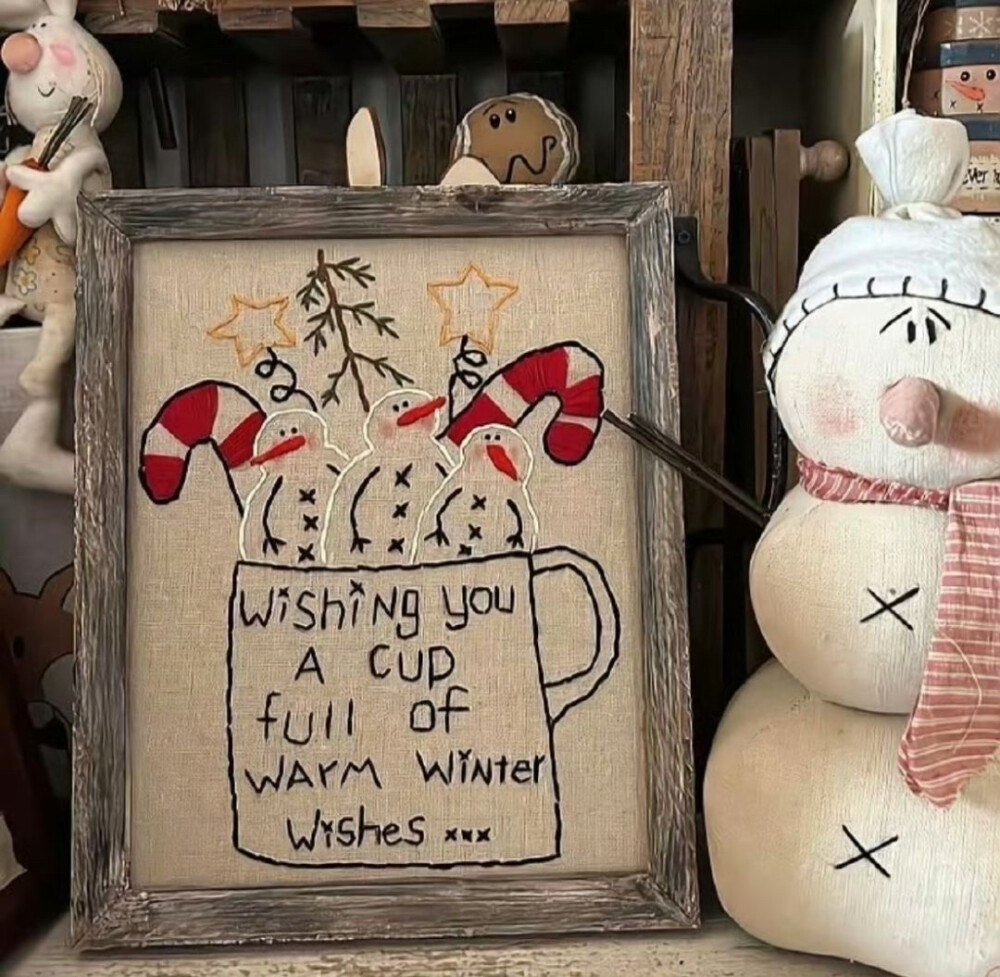 WiShiNg you
A CuP
full of
WArM WiNter
WiShes xxx